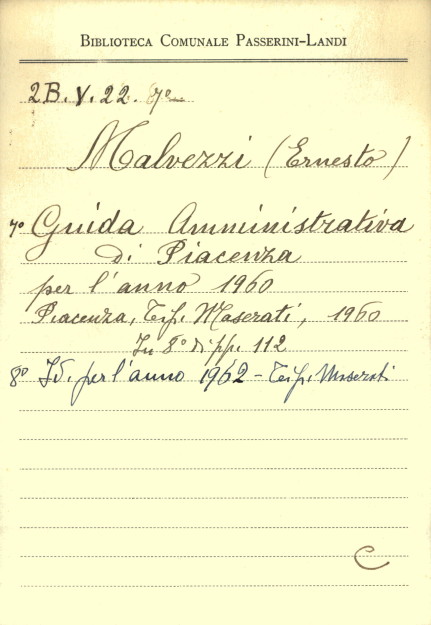 BIBLIOTECA COMUNALE PASSERINI-LANDI
2B. V. 22. 7º
Malvezzi (Ernesto)
7º Guida Amministrativa
di Piacenza
per l'anno 1960
Piacenza, Tip. Maserati, 1960
In 8º di pp. 112
8º Id. per l'anno 1962 - Tip. Maserati
C